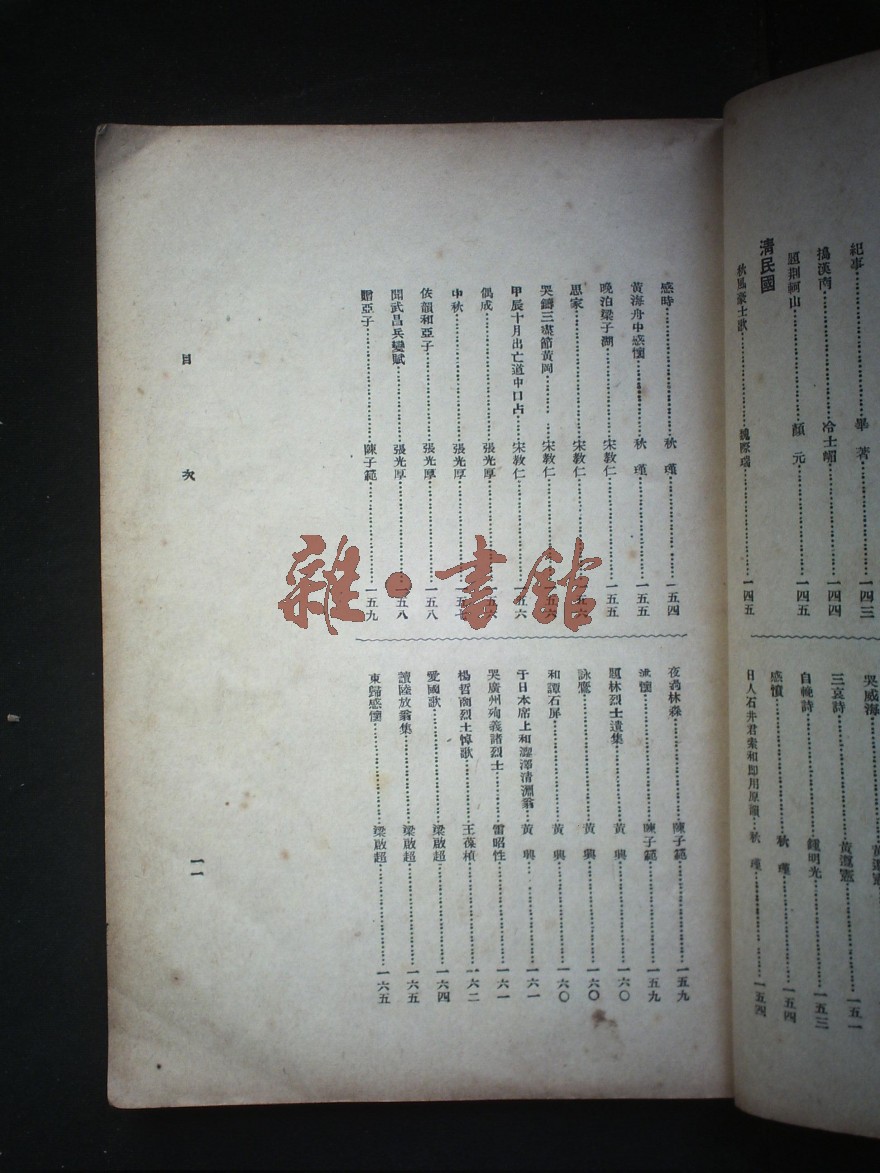 紀事 畢著 一四三
搗漢南 冷士嵋 一四四
題荆軻山 顏元 一四五
清民國
秋風豪士歌 魏際瑞 一四五
哭威海 黃遵憲
三哀詩 黃遵憲 一五一
自輓詩 鍾明光 一五三
感憤 秋瑾 一五四
日人石井君索和即用原韻 秋瑾 一五四
感時 秋瑾 一五四
黃海舟中感懷 秋瑾 一五五
晚泊梁子湖 宋教仁 一五五
思家 宋教仁 一五六
哭鑄三盡節黃岡 宋教仁 一五六
甲辰十月出亡道中口占 宋教仁 一五六
偶成 張光厚 一五六
中秋 張光厚 一五
依韻和亞子 張光厚 一五八
聞武昌兵變賦 張光厚 一五八
贈亞子 陳子範 一五九
夜過林森 陳子範 一五九
述懷 陳子範 一五九
題林烈士遺集 黃興 一六〇
詠鷹 黃興 一六〇
和譚石屏 黃興 一六〇
于日本席上和瀧澤清淵翁 黃興 一六一
哭廣州殉義諸烈士 雷昭性 一六一
楊哲商烈士悼歌 王葆楨 一六二
愛國歌 梁啟超 一六四
讀陸放翁集 梁啟超 一六五
東歸感懷 梁啟超 一六五
目次
一一
雜·書館